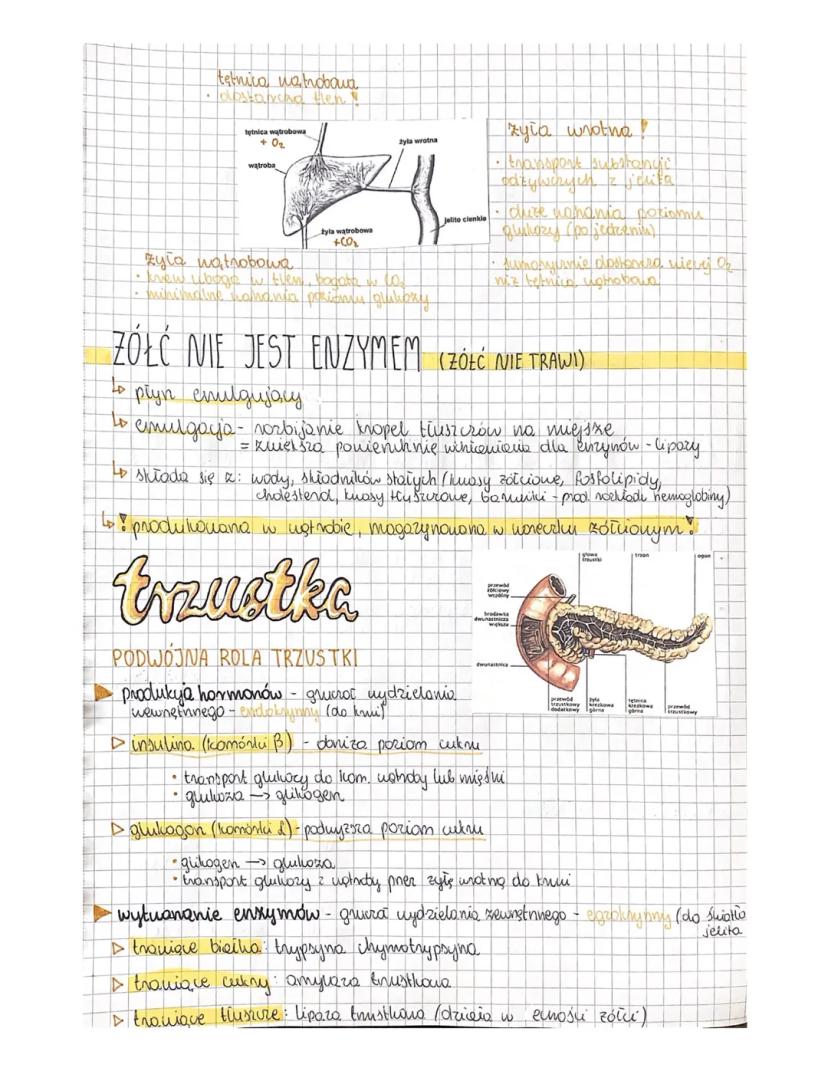 tętnica wątrobowa
• dostarcza tlen!
tętnica wątrobowa
+ O₂
żyła wrotna
wątroba
jelito cienkie
żyła wątrobowa
+CO₂
żyła wrotna!
• transport substancji
odżywczych z jelita
• duże wahania poziomu
glukozy (po jedzeniu)
• sumarycznie dostarcza więcej O₂
niż tętnica wątrobowa
żyła wątrobowa
• krew uboga w tlen, bogata w CO₂
• minimalne wahania poziomu glukozy
ŻÓŁĆ NIE JEST ENZYMEM (ŻÓŁĆ NIE TRAWI)
↳ płyn emulgujący
↳ emulgacja - rozbijanie kropel tłuszczów na miejsze
= zwiększa powierzchnię dla enzymów - lipazy
↳ składa się z: wody, składników stałych (kwasy żółciowe, fosfolipidy,
cholesterol, kwasy tłuszczowe, barwniki - prod. rozkładu hemoglobiny)
↳ ! produkowana w wątrobie, magazynowana w woreczku żółciowym!
trzustka
głowa trzustki
trzon
ogon
przewód żółciowy wspólny
brodawka dwunastnicza większa
dwunastnica
przewód trzustkowy dodatkowy
żyła krezkowa górna
tętnica krezkowa górna
przewód trzustkowy
PODWÓJNA ROLA TRZUSTKI
▶ produkcja hormonów - gruczoł wydzielania
wewnętrznego - endokrynny (do krwi)
▷ insulina (komórki β) - obniża poziom cukru
• transport glukozy do kom. wątroby lub mięśni
• glukoza → glikogen
▷ glukagon (komórki α) - podwyższa poziom cukru
• glikogen → glukoza
• transport glukozy z wątroby przez żyłę wrotną do krwi
▶ wytwarzanie enzymów - gruczoł wydzielania zewnętrznego - egzokrynny (do światła
jelita
▷ trawiące białka: trypsyna chymotrypsyna
▷ trawiące cukry: amylaza trzustkowa
▷ trawiące tłuszcze: lipaza trzustkowa (działa w żółci)